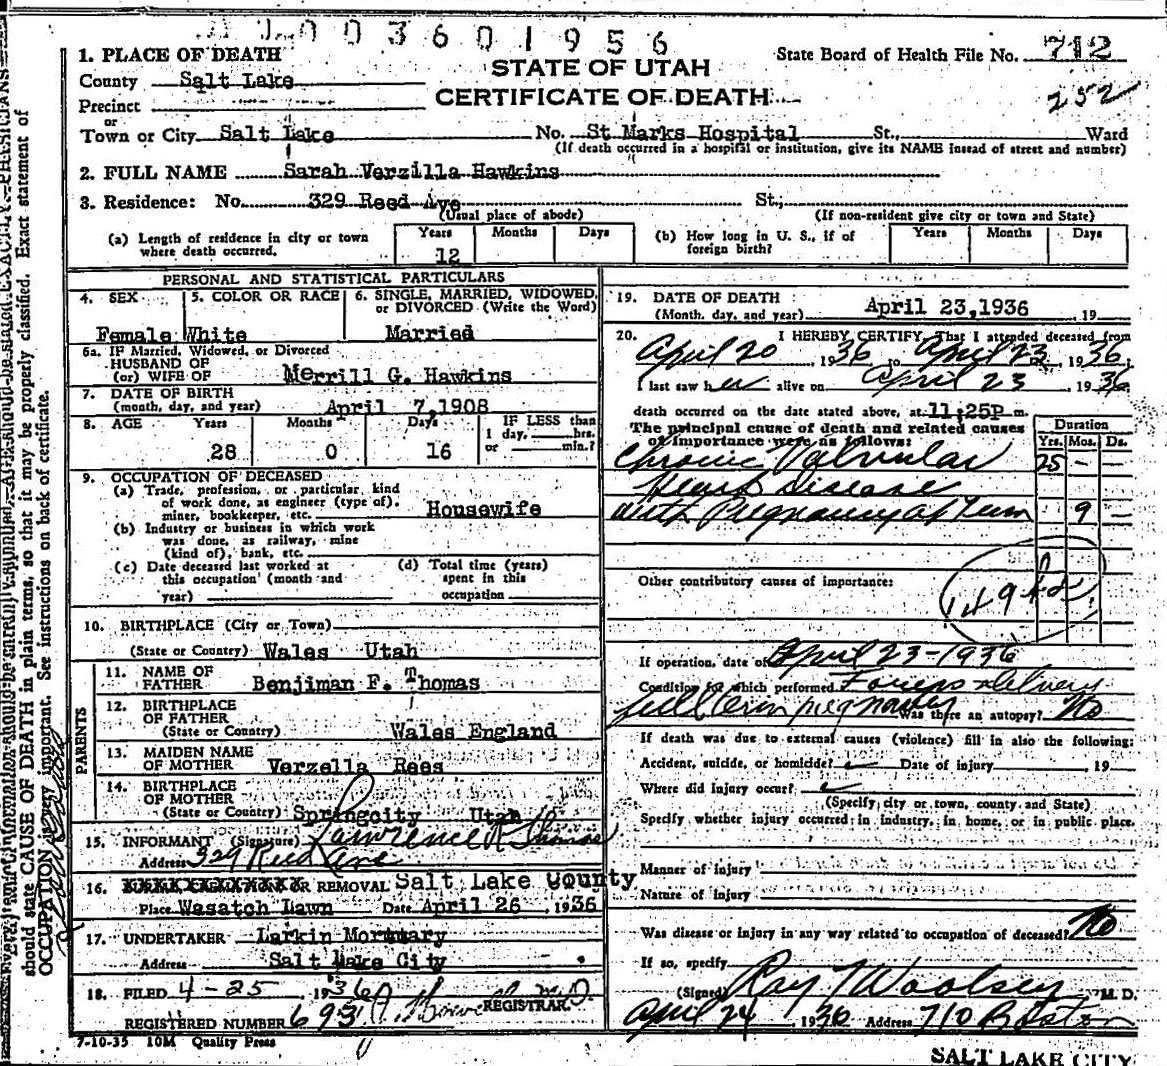 003601956
1. PLACE OF DEATH
State Board of Health File No. 712
STATE OF UTAH
County Salt Lake
CERTIFICATE OF DEATH
252
Precinct
or
Town or City Salt Lake No. St Marks Hospital St., Ward
(If death occurred in a hospital or institution, give its NAME instead of street and number)
2. FULL NAME Sarah Verzilla Hawkins
3. Residence: No. 329 Reed Ave St.,
(Usual place of abode) (If non-resident give city or town and State)
(a) Length of residence in city or town where death occurred. Years 12 Months Days
(b) How long in U. S., if of foreign birth? Years Months Days
PERSONAL AND STATISTICAL PARTICULARS
4. SEX Female
5. COLOR OR RACE White
6. SINGLE, MARRIED, WIDOWED, or DIVORCED (Write the Word) Married
6a. IF Married, Widowed, or Divorced
HUSBAND OF
(or) WIFE OF Merrill G. Hawkins
7. DATE OF BIRTH
(month, day, and year) April 7,1908
8. AGE Years 28 Months 0 Days 16 IF LESS than 1 day, hrs. or min.?
9. OCCUPATION OF DECEASED
(a) Trade, profession, or particular kind
of work done, as engineer (type of),
miner, bookkeeper, etc. Housewife
(b) Industry or business in which work
was done, as railway, mine
(kind of), bank, etc.
(c) Date deceased last worked at
this occupation (month and
year)
(d) Total time (years)
spent in this
occupation
10. BIRTHPLACE (City or Town)
(State or Country) Wales Utah
PARENTS
11. NAME OF
FATHER Benjiman F. Thomas
12. BIRTHPLACE
OF FATHER
(State or Country) Wales England
13. MAIDEN NAME
OF MOTHER Verzella Rees
14. BIRTHPLACE
OF MOTHER
(State or Country) Springcity Utah
15. INFORMANT (Signature) Lawrence R Thomas
Address 329 Reed Ave
16. OR REMOVAL Salt Lake County
Place Wasatch Lawn Date April 26, 1936
17. UNDERTAKER Larkin Mortuary
Address Salt Lake City
18. FILED 4-25, 1936 M.D.
REGISTRAR.
REGISTERED NUMBER 693
7-10-35 10M Quality Press
19. DATE OF DEATH
(Month, day, and year) April 23,1936 19
20. I HEREBY CERTIFY, That I attended deceased from
April 20, 1936 to April 23, 1936;
I last saw her alive on April 23 1936
death occurred on the date stated above, at 11:25P m.
The principal cause of death and related causes
of importance were as follows:
Duration
Yrs. Mos. Ds.
Chronic Valvular 25 - -
Heart Disease
with Pregnancy at Term 9 -
Other contributory causes of importance:
If operation, date of April 23-1936
Condition for which performed Forceps delivery
full term pregnancy Was there an autopsy? No
If death was due to external causes (violence) fill in also the following:
Accident, suicide, or homicide? Date of injury 19
Where did injury occur?
(Specify city or town, county and State)
Specify whether injury occurred in industry, in home, or in public place.
Manner of injury
Nature of injury
Was disease or injury in any way related to occupation of deceased? No
If so, specify
(Signed) Ray T Woolsey M. D.
April 24, 1936 Address 710 Boston
SALT LAKE CITY
should state CAUSE OF DEATH in plain terms, so that it may be properly classified. Exact statement of
OCCUPATION is very important. See instructions on back of certificate.